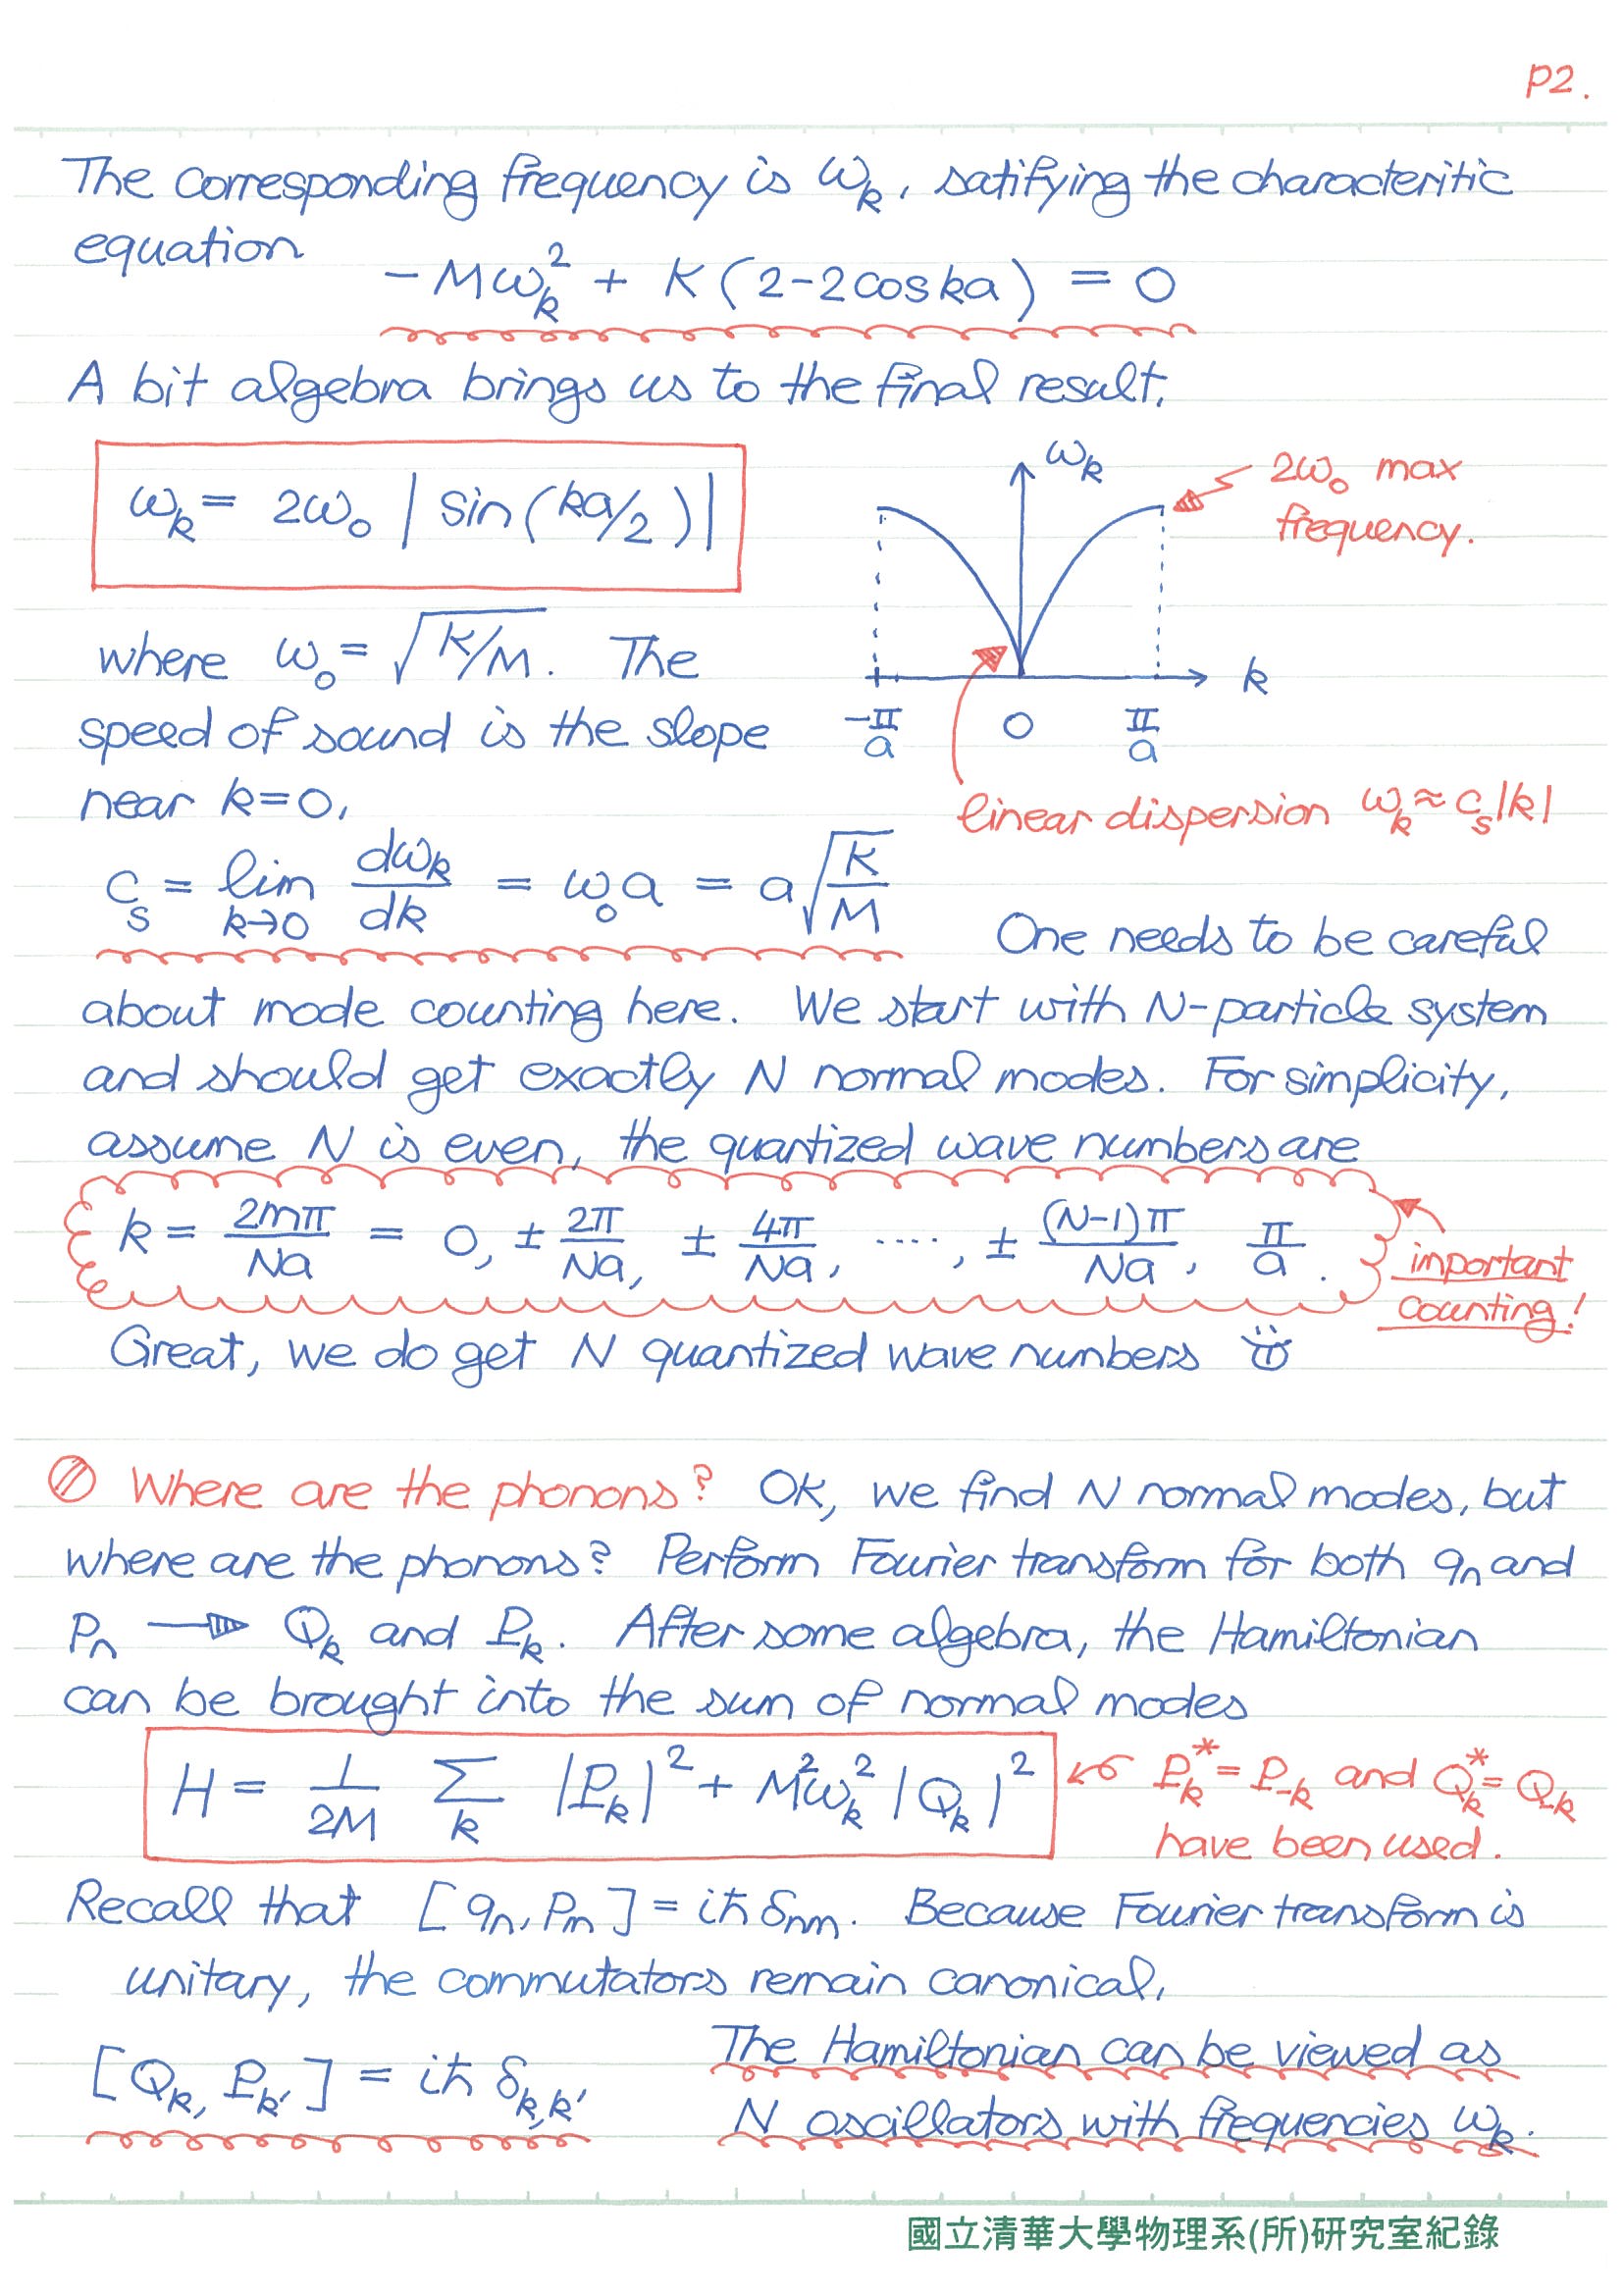 P2.
The corresponding frequency is ωk, satifying the characteritic
equation
-Mωk² + K(2-2coska) = 0
A bit algebra brings us to the final result,
ωk = 2ω₀ |sin(ka/2)|
ωk
2ω₀ max
frequency.
where ω₀ = √K/M. The
k
speed of sound is the slope
-π/a 0 π/a
near k=0,
linear dispersion ωk ≈ cs|k|
cs = lim k→0 dωk/dk = ω₀a = a√K/M
One needs to be careful
about mode counting here. We start with N-particle system
and should get exactly N normal modes. For simplicity,
assume N is even, the quantized wave numbers are
k = 2mπ/Na = 0, ± 2π/Na, ± 4π/Na, ····, ± (N-1)π/Na, π/a.
important
counting!
Great, we do get N quantized wave numbers
Where are the phonons? Ok, we find N normal modes, but
where are the phonons? Perform Fourier transform for both qn and
Pn → Qk and Pk. After some algebra, the Hamiltonian
can be brought into the sum of normal modes
H = 1/2M Σk |Pk|² + M²ωk²|Qk|²
Pk* = P-k and Qk* = Q-k
have been used.
Recall that [qn, Pm] = iħ δnm. Because Fourier transform is
unitary, the commutators remain canonical,
[Qk, Pk'] = iħ δk,k'
The Hamiltonian can be viewed as
N oscillators with frequencies ωk.
國立清華大學物理系(所)研究室紀錄